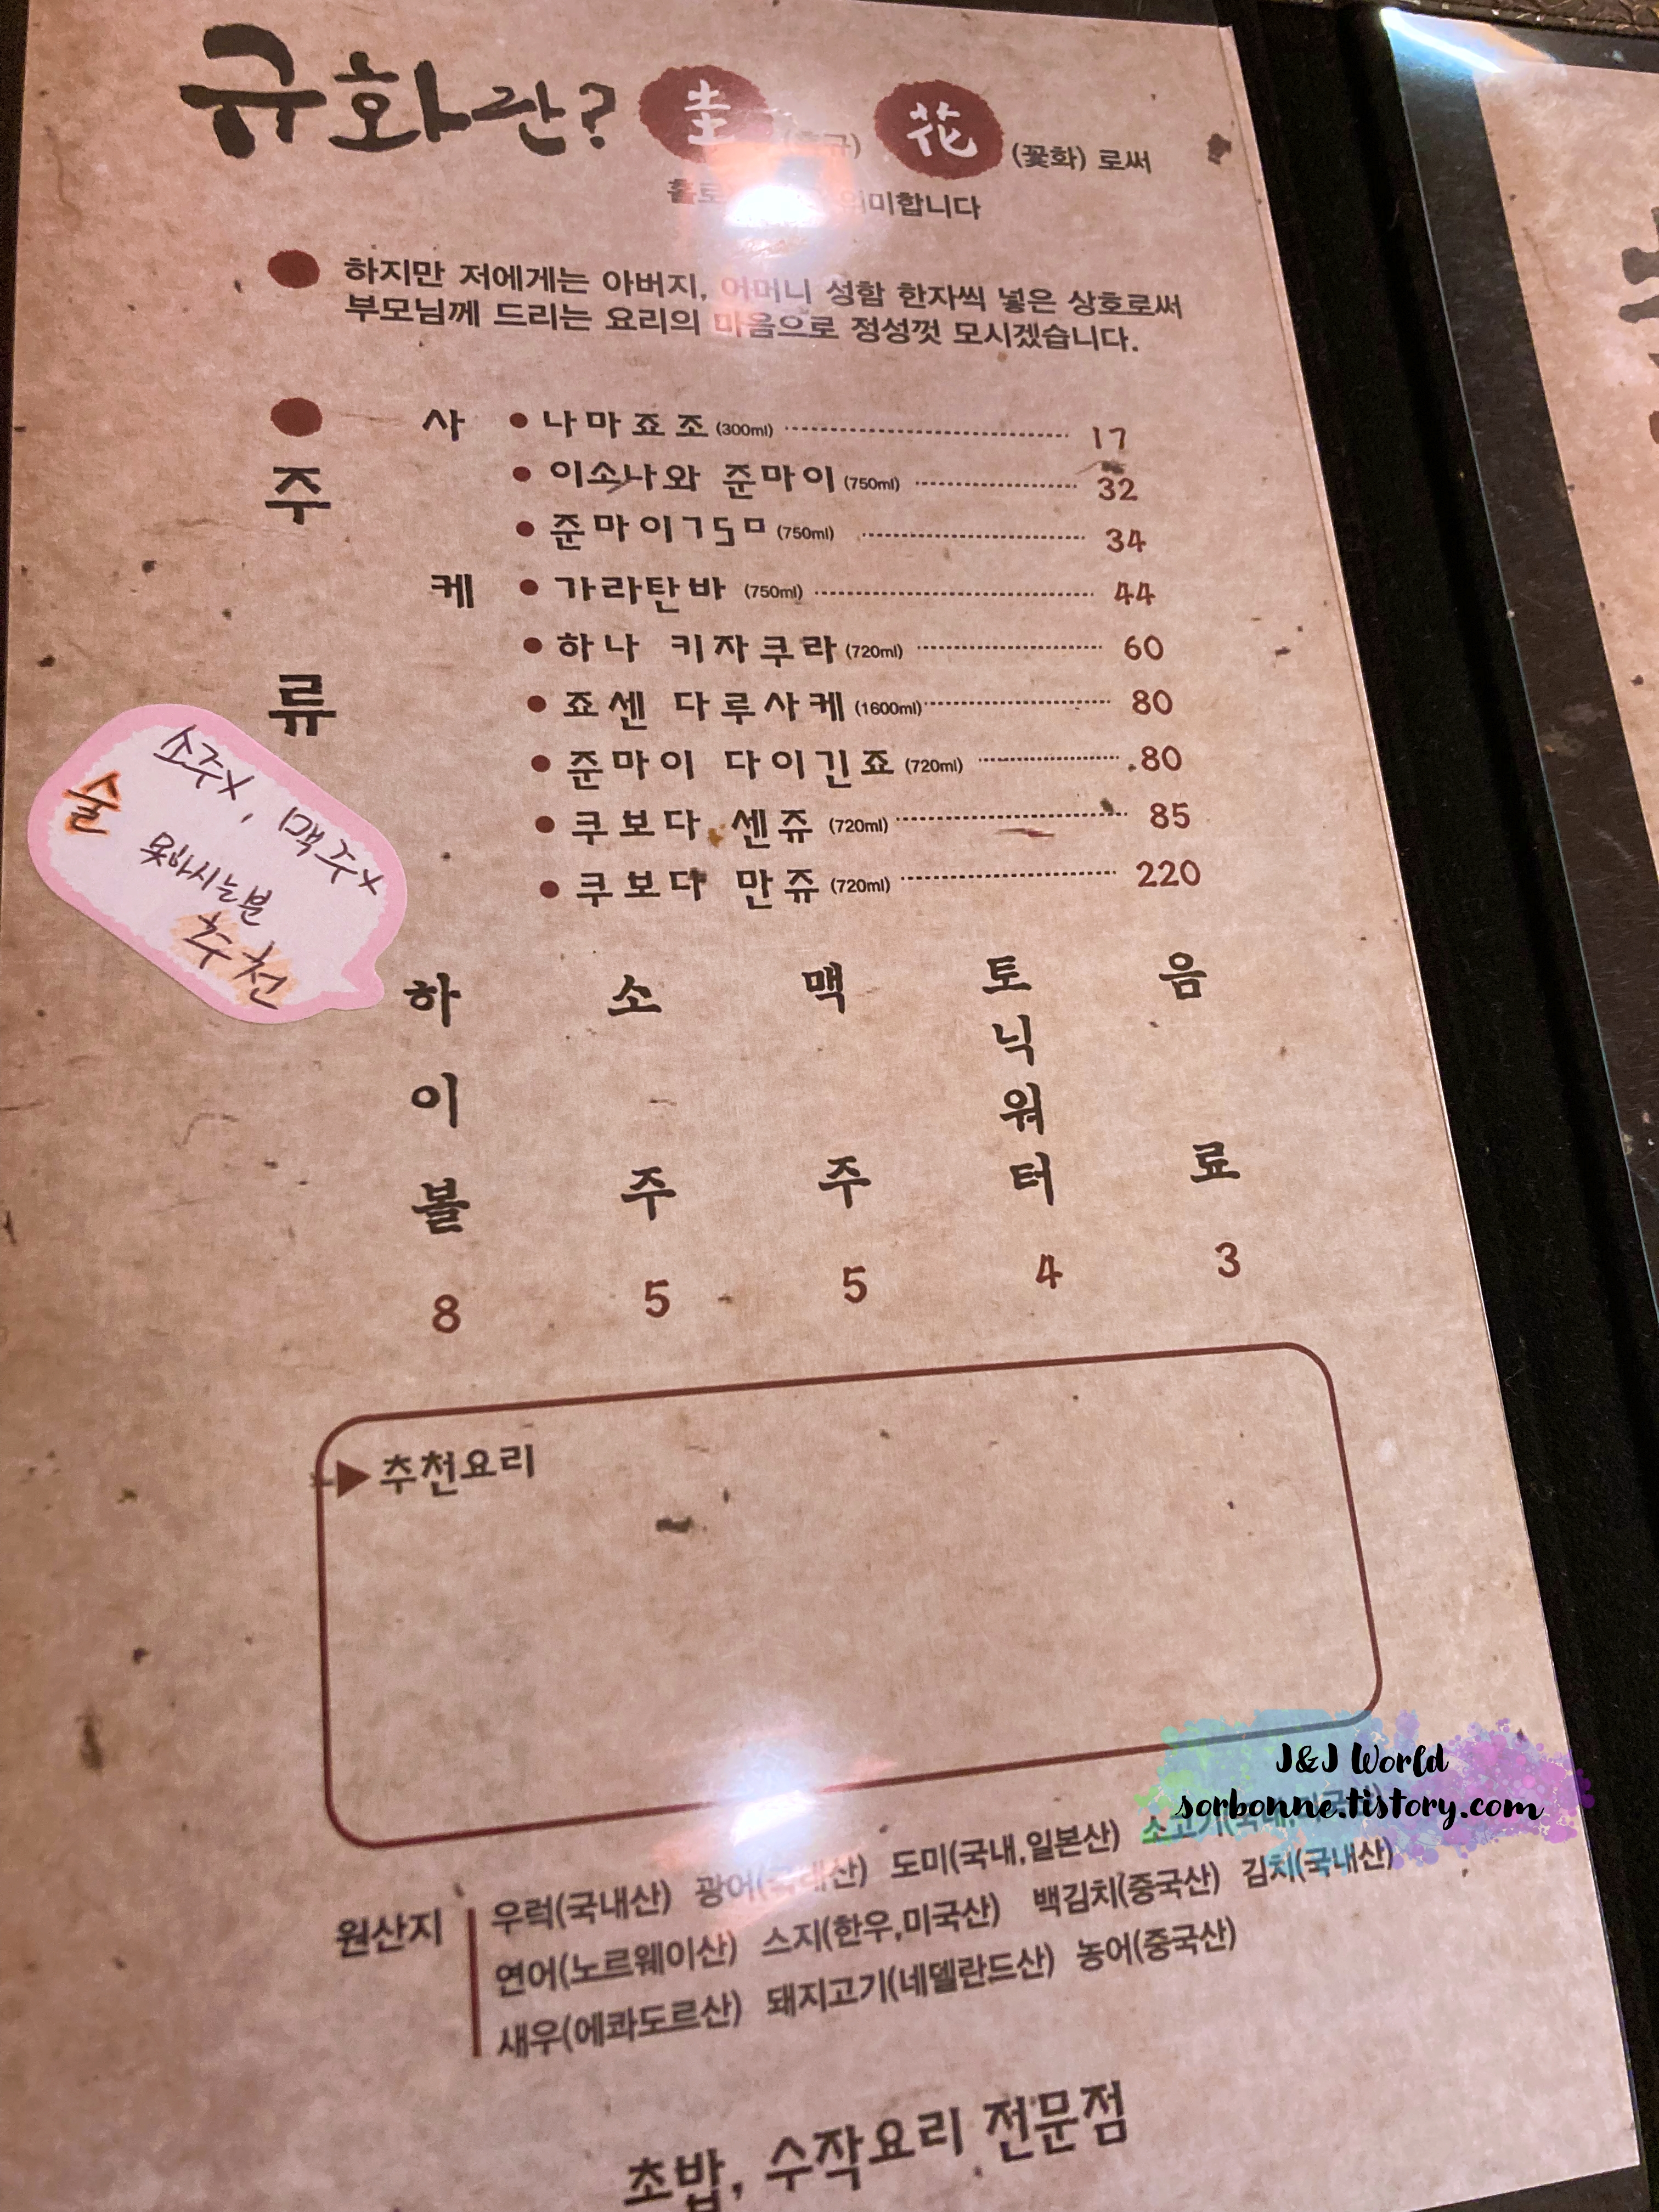 규화란? 圭 花 (꽃화) 로써
의미합니다
하지만 저에게는 아버지, 어머니 성함 한자씩 넣은 상호로써
부모님께 드리는 요리의 마음으로 정성껏 모시겠습니다.
주류
사케
나마죠조 (300ml) 17
이소나와 준마이 (750ml) 32
준마이750 (750ml) 34
가라탄바 (750ml) 44
하나 키자쿠라 (720ml) 60
죠센 다루사케 (1600ml) 80
준마이 다이긴죠 (720ml) 80
쿠보다 센쥬 (720ml) 85
쿠보다 만쥬 (720ml) 220
소주x, 맥주x
술 못마시는분
추천
하이볼 8
소주 5
맥주 5
토닉워터 4
음료 3
추천요리
원산지
우럭(국내산) 광어(국내산) 도미(국내,일본산) 소고기(국내,미국산)
연어(노르웨이산) 스지(한우,미국산) 백김치(중국산) 김치(국내산)
새우(에콰도르산) 돼지고기(네델란드산) 농어(중국산)
초밥, 수작요리 전문점
J&J World
sorbonne.tistory.com